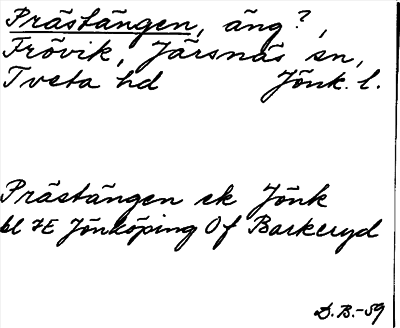 Prästängen, äng?,
Frövik, Järsnäs sn,
Tveta hd Jönk. l.
Prästängen ek Jönk
bl 7E Jönköping Of Barkeryd
D.B.-59